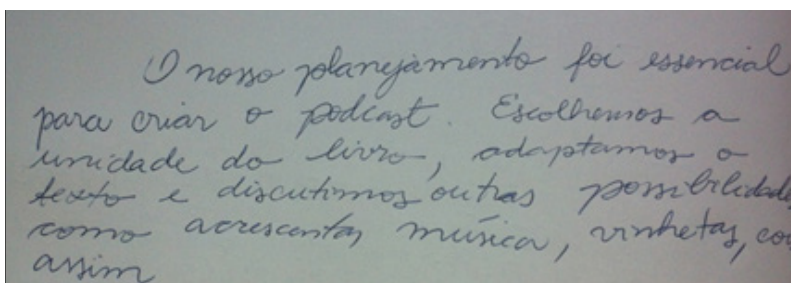 O nosso planejamento foi essencial
para criar o podcast. Escolhemos a
unidade do livro, adaptamos o
texto e discutimos outras possibilidade
como acrescentar música, vinhetas, co
assim